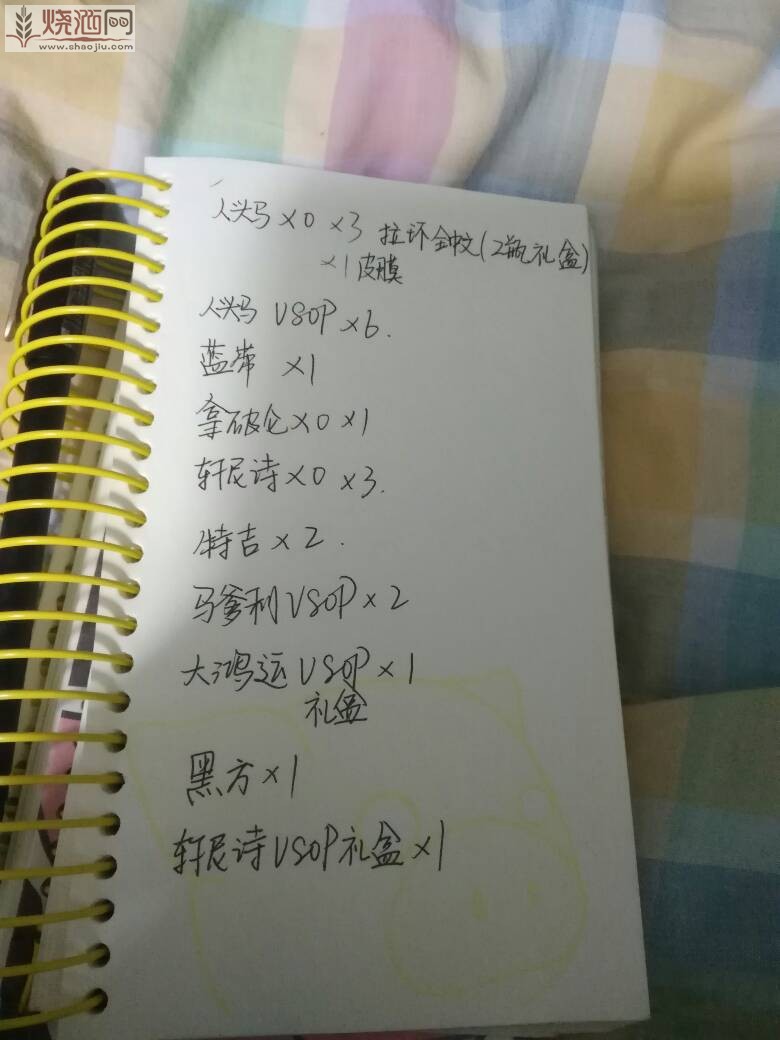 烧酒网
www.shaojiu.com
人头马XO ×3 拉环全中文(2瓶礼盒)
×1皮膜
人头马 VSOP ×6.
蓝带 ×1
拿破仑XO ×1
轩尼诗XO ×3.
特吉×2.
马爹利VSOP×2
大鸿运VSOP×1
礼盒
黑方×1
轩尼诗VSOP礼盒×1